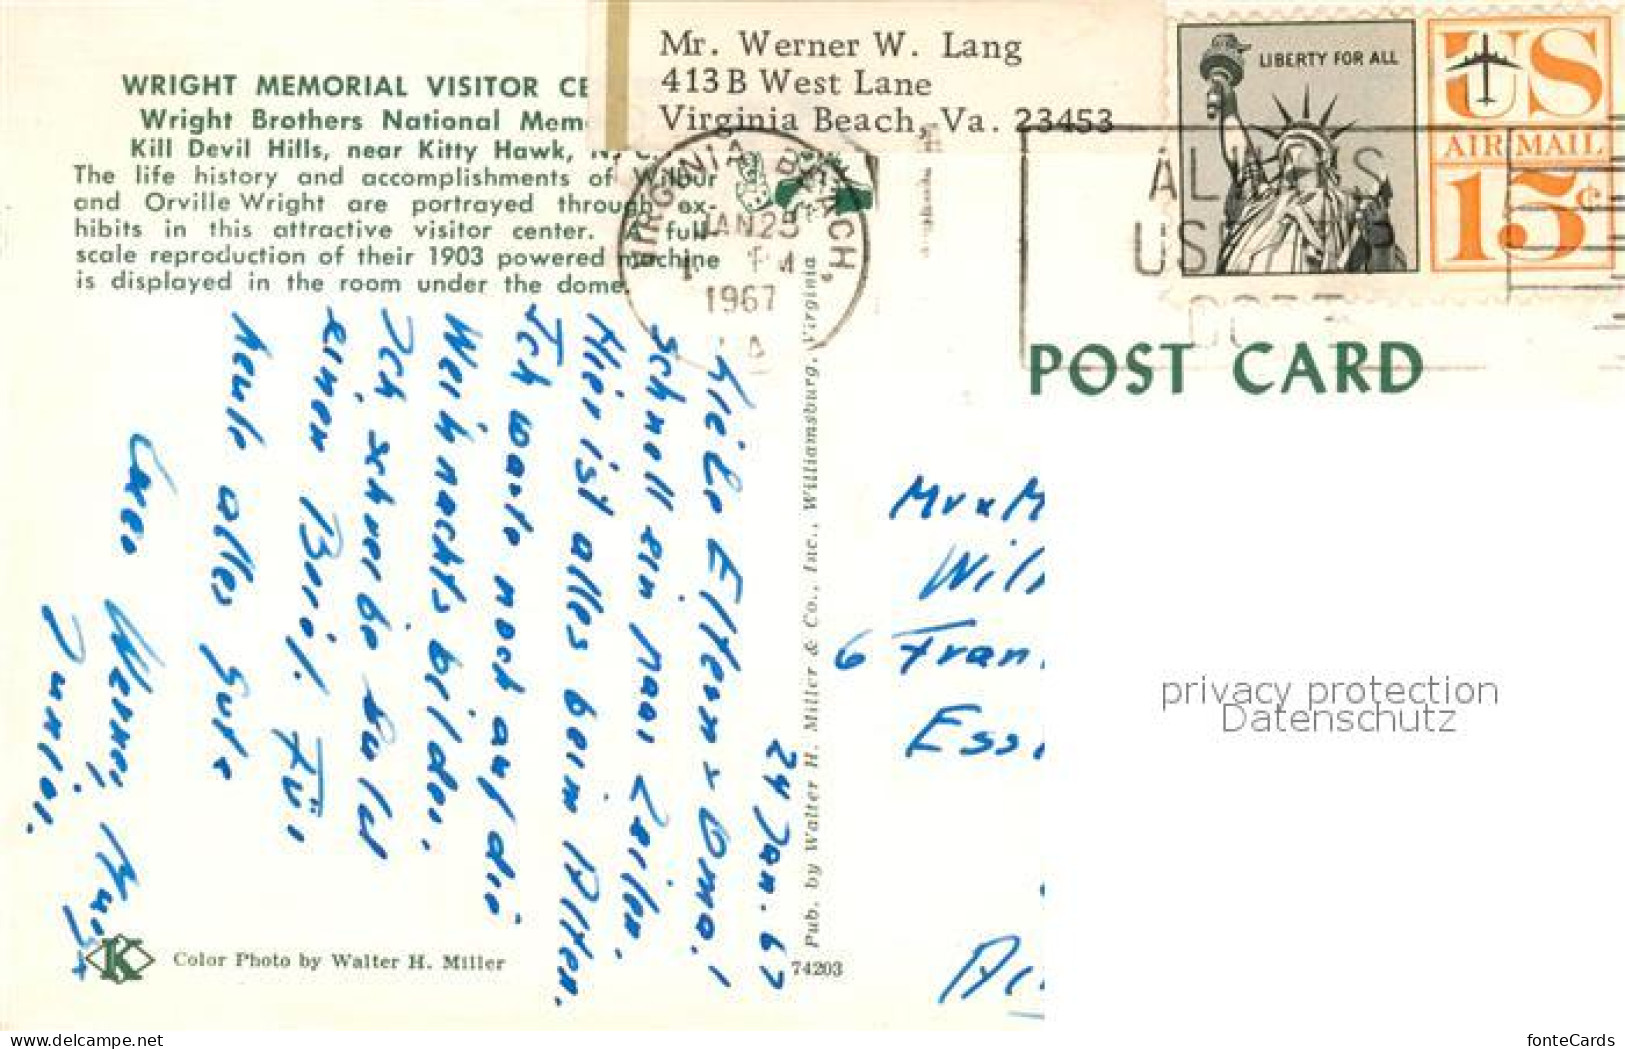 WRIGHT MEMORIAL VISITOR CE
Wright Brothers National Mem
Kill Devil Hills, near Kitty Hawk, N. C.
The life history and accomplishments of Wilbur
and Orville Wright are portrayed through ex-
hibits in this attractive visitor center. A full
scale reproduction of their 1903 powered machine
is displayed in the room under the dome.
Mr. Werner W. Lang
413B West Lane
Virginia Beach, Va. 23453
VIRGINIA BEACH,
JAN 25
PM
1967
LIBERTY FOR ALL
US
AIR MAIL
15¢
ALWAYS
USE ZIP
CODE
POST CARD
24 Jan. 67
Liebe Eltern & Oma!
Schnell ein paar Zeilen.
Hier ist alles beim Alten.
Ich warte noch auf die
Weihnachtsbilder.
Ich schreibe bald
einen Brief. Für
heute alles Gute
Euer Werner,
Junior.
Mr & M
Wil
6 Fran
Ess
Pub. by Walter H. Miller & Co., Inc., Williamsburg, Virginia
74203
K
Color Photo by Walter H. Miller
privacy protection
Datenschutz
www.delcampe.net
fonteCards